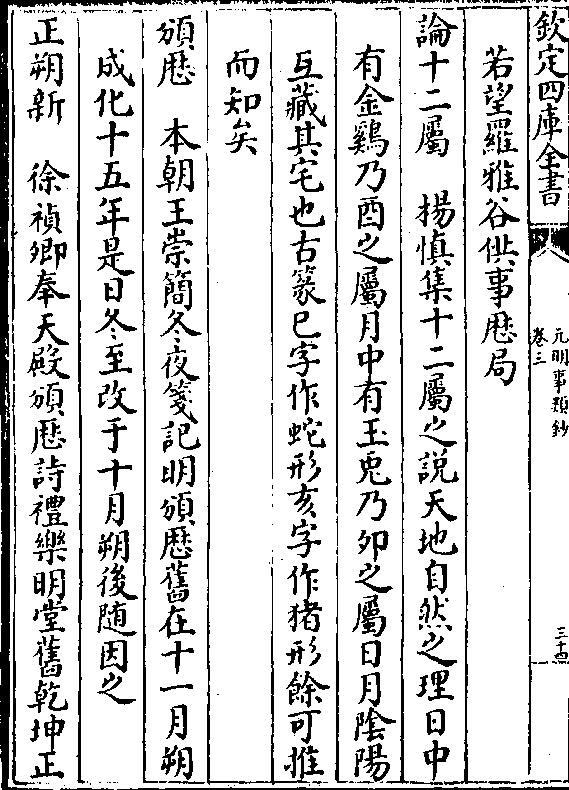 欽定四庫全書
元明事類鈔
卷三
三十四
若望羅雅谷供事厯局
論十二屬　楊慎集十二屬之說天地自然之理日中
有金鷄乃酉之屬月中有玉兎乃夘之屬日月陰陽
互藏其宅也古篆巳字作蛇形亥字作猪形餘可推
而知矣
頒厯　本朝王崇簡冬夜箋記明頒厯舊在十一月朔
成化十五年是日冬至改于十月朔後随因之
正朔新　徐禎卿奉天殿頒厯詩禮樂明堂舊乾坤正